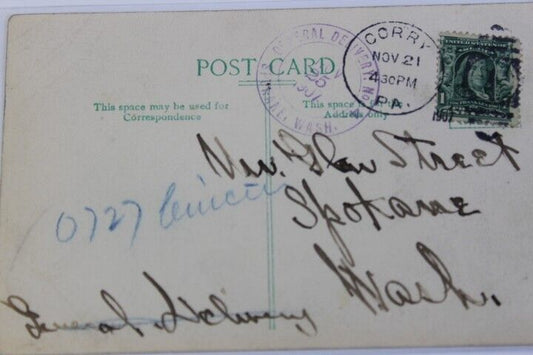 POST CARD
This space may be used for
Correspondence
This space is for
Address only
GENERAL DELIVERY
WASH.
CORRY
NOV 21
4 30 PM
PA.
1907
Street
Spokane
Wash.
0727
General Delivery